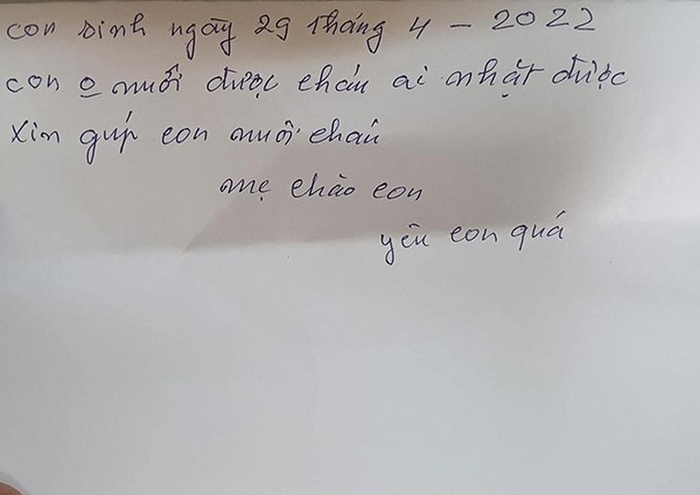 con sinh ngày 29 tháng 4 - 2022
con o nuôi được cháu ai nhặt được
xin gúp con nuôi cháu
mẹ chào con
yêu con quá